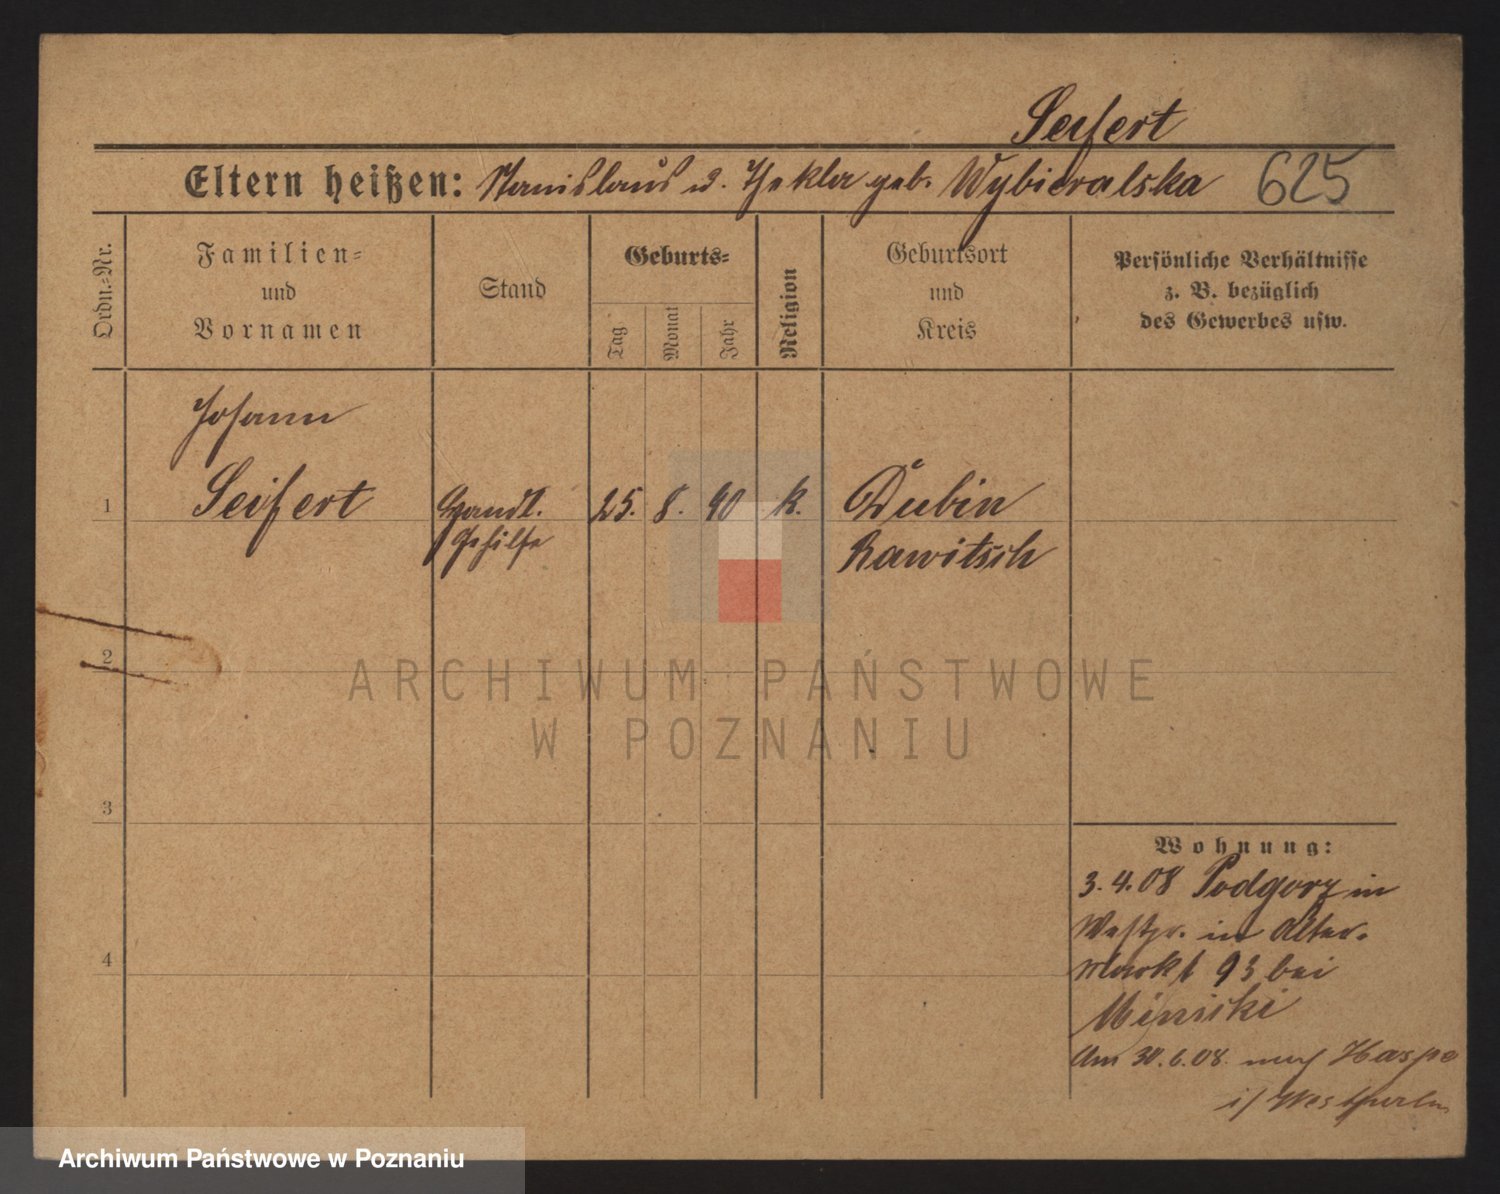 Seifert
Eltern heißen: Stanislaus u. Thekla geb. Wybieralska 625
Ordn.-Nr.
Familien-
und
Vornamen
Stand
Geburts-
Tag
Monat
Jahr
Religion
Geburtsort
und
Kreis
Persönliche Verhältnisse
z. B. bezüglich
des Gewerbes usw.
Johann
1 Seifert Handl. 25. 8. 90 k. Dubin
Gehilfe Rawitsch
2
ARCHIWUM PAŃSTWOWE
W POZNANIU
3
Wohnung:
3.4.08 Podgorz in
Westpr. in Alter.
4 Markt 93 bei
Miniski
Am 30.6.08. nach Haspe
i/
Archiwum Państwowe w Poznaniu